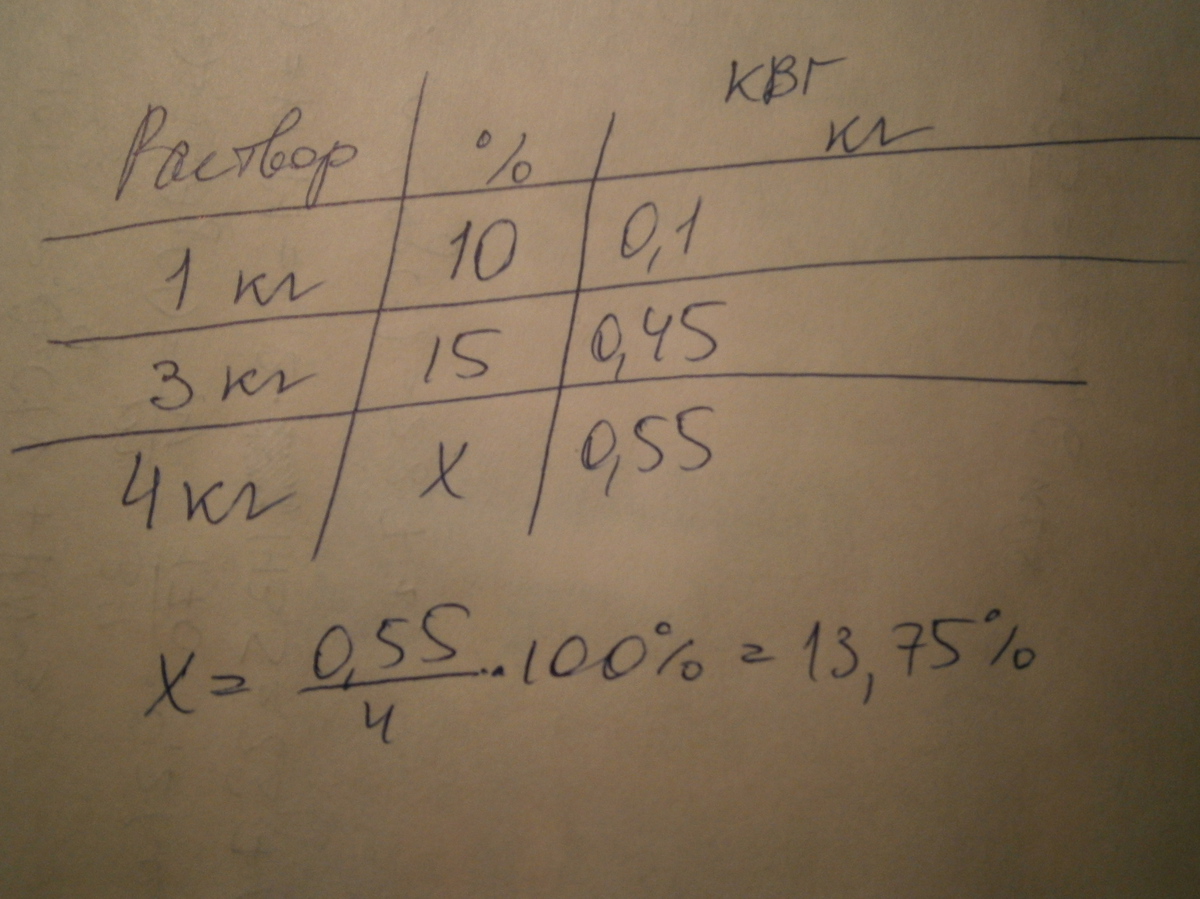 КВГ
Раствор % кг
1 кг 10 0,1
3 кг 15 0,45
4 кг x 0,55
x = 0,55/4 · 100% = 13,75%